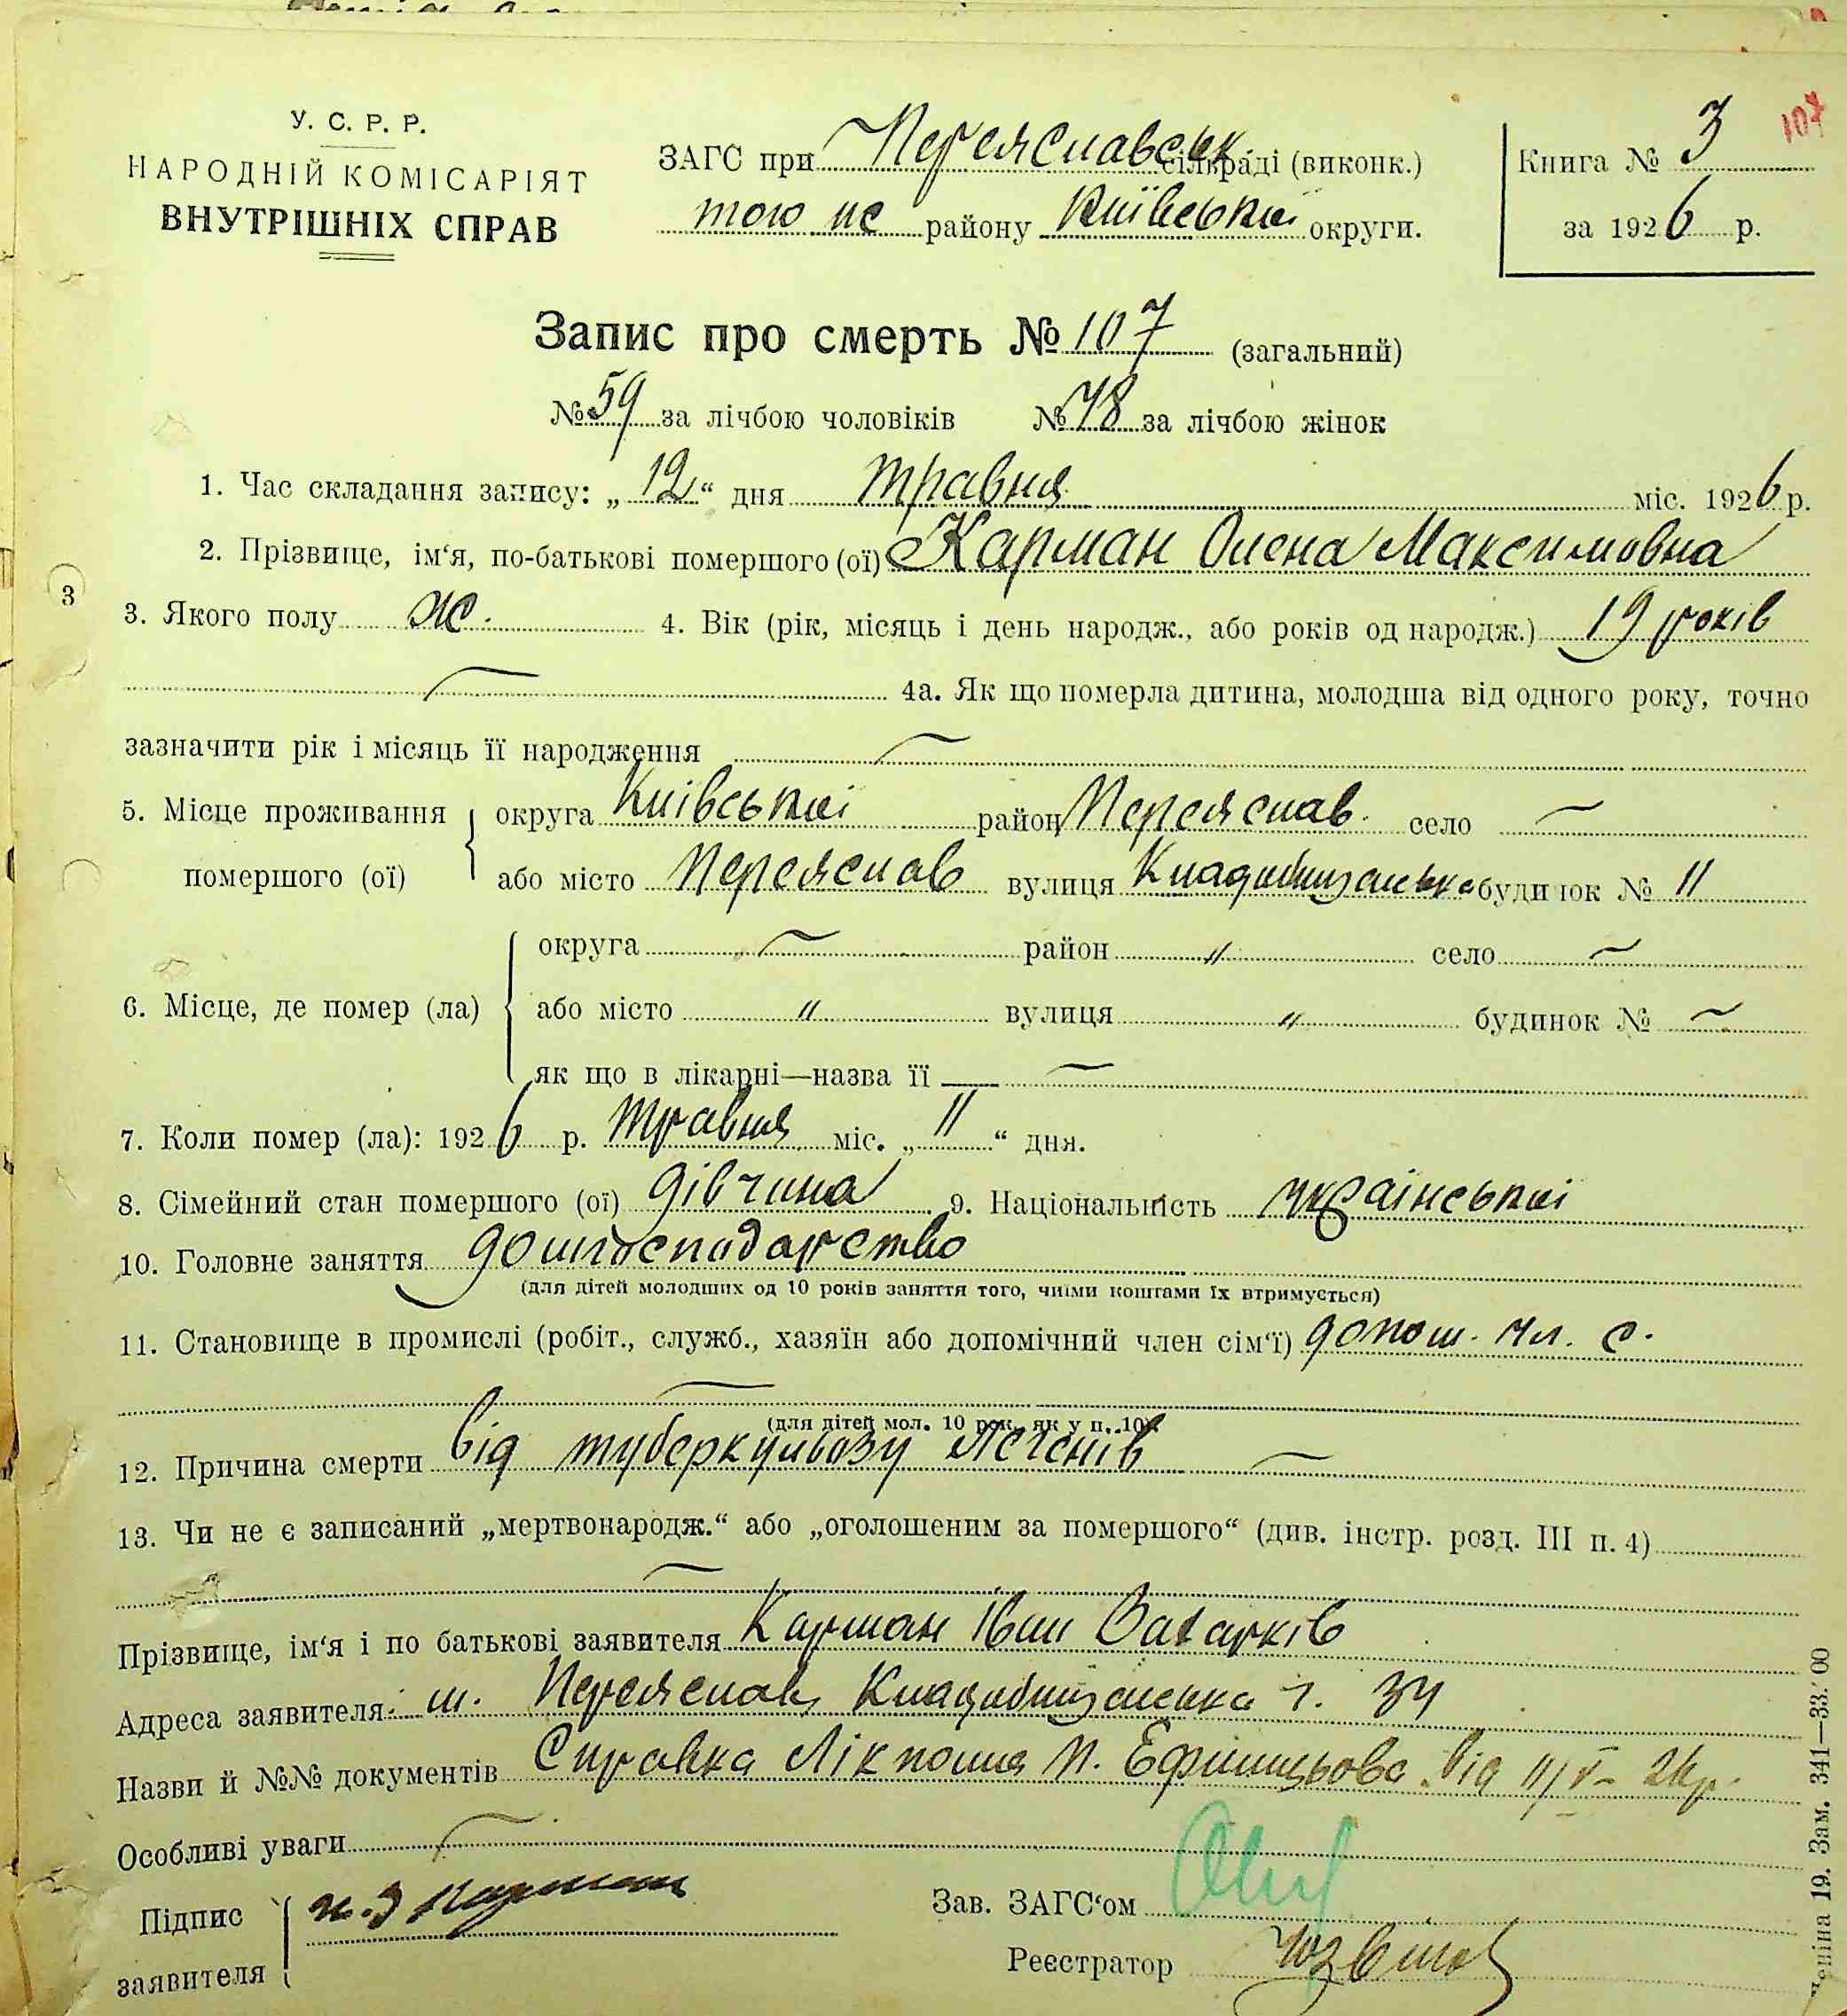 У. С. Р. Р.
НАРОДНІЙ КОМІСАРІЯТ
ВНУТРІШНІХ СПРАВ
ЗАГС при Переяславськ. сільраді (виконк.)
того ж району Київської округи.
Книга № 3
за 1926 р.
107
Запис про смерть № 107 (загальний)
№ 59 за лічбою чоловіків № 48 за лічбою жінок
1. Час складання запису: „12“ дня травня міс. 1926 р.
2. Прізвище, ім‘я, по-батькові помершого (ої) Карман Олена Максимовна
3
3. Якого полу ж. 4. Вік (рік, місяць і день народж., або років од народж.) 19 років
4а. Як що померла дитина, молодша від одного року, точно
зазначити рік і місяць її народження
5. Місце проживання округа Київської район Переяслав. село
помершого (ої) або місто Переяслав вулиця Кладовищенська будинок № 11
округа район " село
6. Місце, де помер (ла) або місто " вулиця " будинок №
як що в лікарні—назва її
7. Коли помер (ла): 1926 р. травня міс. „11“ дня.
8. Сімейний стан помершого (ої) дівчина 9. Національність української
10. Головне заняття домгосподарство
(для дітей молодших од 10 років заняття того, чиїми коштами їх втримується)
11. Становище в промислі (робіт., служб., хазяїн або допомічний член сім‘ї) допом. чл. с.
(для дітей мол. 10 рок. як у п. 10)
12. Причина смерти від туберкульозу легенів
13. Чи не є записаний „мертвонародж.“ або „оголошеним за помершого“ (див. інстр. розд. III п. 4)
Прізвище, ім‘я і по батькові заявителя Карман Іван
Адреса заявителя: м. Переяслав Кладовищенська ч. 34
Назви й №№ документів Справка Лікпома від 11/V- 26р.
Особливі уваги
Підпис Карман
заявителя
Зав. ЗАГС‘ом
Реєстратор
19. Зам. 341—33.